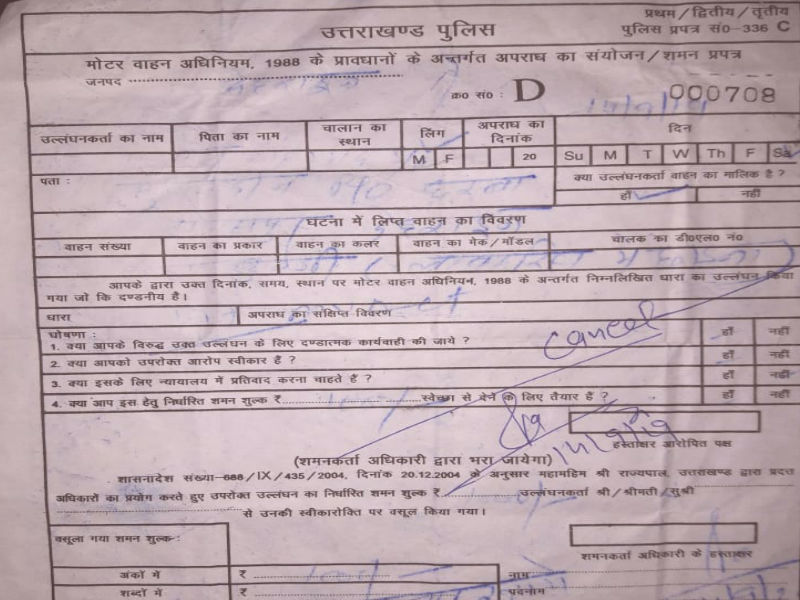 प्रथम/द्वितीय/तृतीय
उत्तराखण्ड पुलिस
पुलिस प्रपत्र सं०-336 C
मोटर वाहन अधिनियम, 1988 के प्रावधानों के अन्तर्गत अपराध का संयोजन/शमन प्रपत्र
जनपद
क्र० सं० : D 000708
उल्लंघनकर्ता का नाम पिता का नाम चालान का स्थान लिंग अपराध का दिनांक दिन
M F 20 Su M T W Th F Sa
पता : क्या उल्लंघनकर्ता वाहन का मालिक है ?
हाँ नहीं
घटना में लिप्त वाहन का विवरण
वाहन संख्या वाहन का प्रकार वाहन का कलर वाहन का मेक/मॉडल चालक का डी०एल० नं०
आपके द्वारा उक्त दिनांक, समय, स्थान पर मोटर वाहन अधिनियन, 1988 के अन्तर्गत निम्नलिखित धारा का उल्लंघन किया
गया जो कि दण्डनीय है।
धारा अपराध का संक्षिप्त विवरण
घोषणा :
1. क्या आपके विरुद्ध उक्त उल्लंघन के लिए दण्डात्मक कार्यवाही की जाये ? हाँ नहीं
cancel
2. क्या आपको उपरोक्त आरोप स्वीकार हैं ? हाँ नहीं
3. क्या इसके लिए न्यायालय में प्रतिवाद करना चाहते हैं ? हाँ नहीं
4. क्या आप इस हेतु निर्धारित शमन शुल्क ₹ स्वेच्छा से देने के लिए तैयार हैं ? हाँ नहीं
हस्ताक्षर आरोपित पक्ष
(शमनकर्ता अधिकारी द्वारा भरा जायेगा)
शासनादेश संख्या-688/IX/435/2004, दिनांक 20.12.2004 के अनुसार महामहिम श्री राज्यपाल, उत्तराखण्ड द्वारा प्रदत्त
अधिकारों का प्रयोग करते हुए उपरोक्त उल्लंघन का निर्धारित शमन शुल्क ₹ उल्लंघनकर्ता श्री/श्रीमती/सुश्री
से उनकी स्वीकारोक्ति पर वसूल किया गया।
वसूला गया शमन शुल्क :
शमनकर्ता अधिकारी के हस्ताक्षर
अंकों में ₹ नाम
शब्दों में ₹ पदनाम